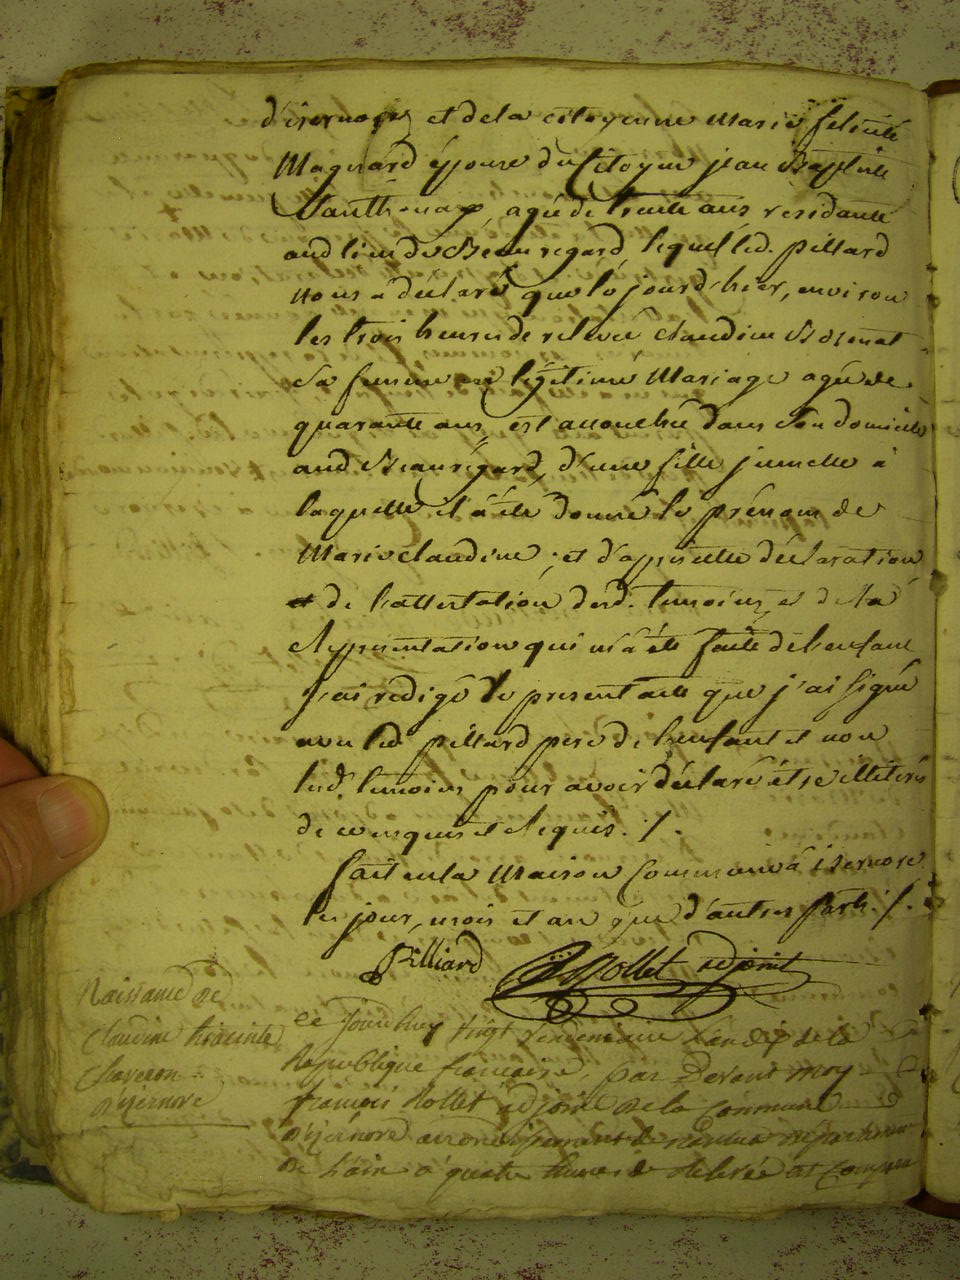 d'isernore, et de la citoyenne Marie felicité
Magnard épouse du Citoyen jean Baptiste
Santhonax, agée de trente ans residante
aud lieu de Beauregard, lequel led. pillard
nous a déclaré que le jourd'hier, environ
les trois heures de relevée claudine
sa femme en légitime Mariage agée de
quarante ans, est accouchée dans son domicile
aud Beauregard, d'une fille jumelle à
laquelle il a été donné le prénom de
Marie claudine ; et d'apprès cette déclaration
et de l'attestation desd. temoins et de la
Representation qui m'a été faite de l'enfant
j'ai rédigé le present acte que j'ai signé
avec led. pillard pere de l'enfant et non
lesd. temoins pour avoir déclaré être illitérés
de ce enquis et Requis. /.
fait en la Maison Commune à isernore
les jour, mois et an que d'autres parts. /.
Pilliard Rollet adjoint
Naissance de
Claudine hiacinte
Chaveron
d'izernore
ce Jourd'huy vingt Vendemiaire L'an dix de la
Republique francaise par Devant moy
francois Rollet adjoint de la Commune
d'izernore arrondissement de nantua departement
de L'ain a quatre heures de Relevée est comparu